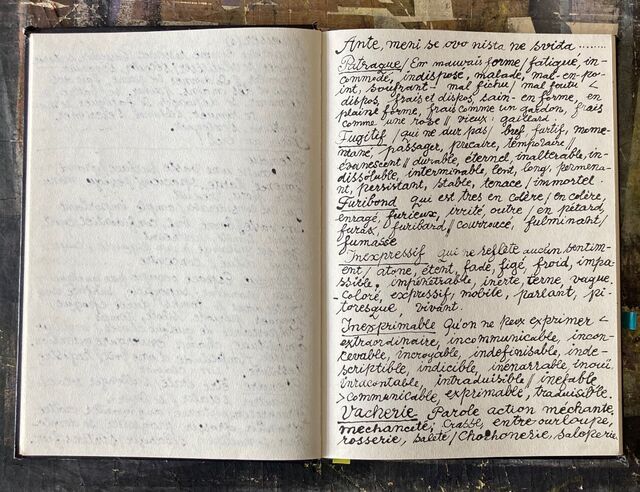 Ante, meni se ovo ništa ne sviđa ........
Patraque / Em mauvais forme / fatigué, in-
commodé, indispose, malade, mal-en-po-
int, souffrant - mal fichu / mal foutu <
dispos, frais et dispos, sain - en forme, en
pleine forme, frais comme un gardon, frais
comme une rose // vieux: gaillard.
Fugitif / qui ne dur pas / bref furtif, mome-
ntané, passager, precaire, temporaire //
evanescent // durable, éternel, inalterable, in-
dissoluble, interminable, lent, long, permena-
nt, persistant, stable, tenace / immortel.
Furibond qui est tres en colère / en colère,
enragé, furieux, irrité, outre / en pétard,
furax, furibard // courroucé, fulminant /
fumasse
Inexpressif qui ne refléte aucun sentim-
ent / atone, éteint, fade, figé, froid, impa-
ssible, impénétrable, inerte, terne, vague.
- coloré, expressif, mobile, parlant, pi-
toresque vivant.
Inexprimable Qu'on ne peux exprimer <
extraordinaire, incommunicable, incon-
cevable, incroyable, indefinisable, inde-
scriptible, indicible, inenarrable, inouï
inracontable, intraduisible // inefable
> communicable, exprimable, traduisible.
Vacherie Parole action méchante,
mechanceté, crasse, entourloupe,
rosserie, saleté / Chochonerie, saloperie